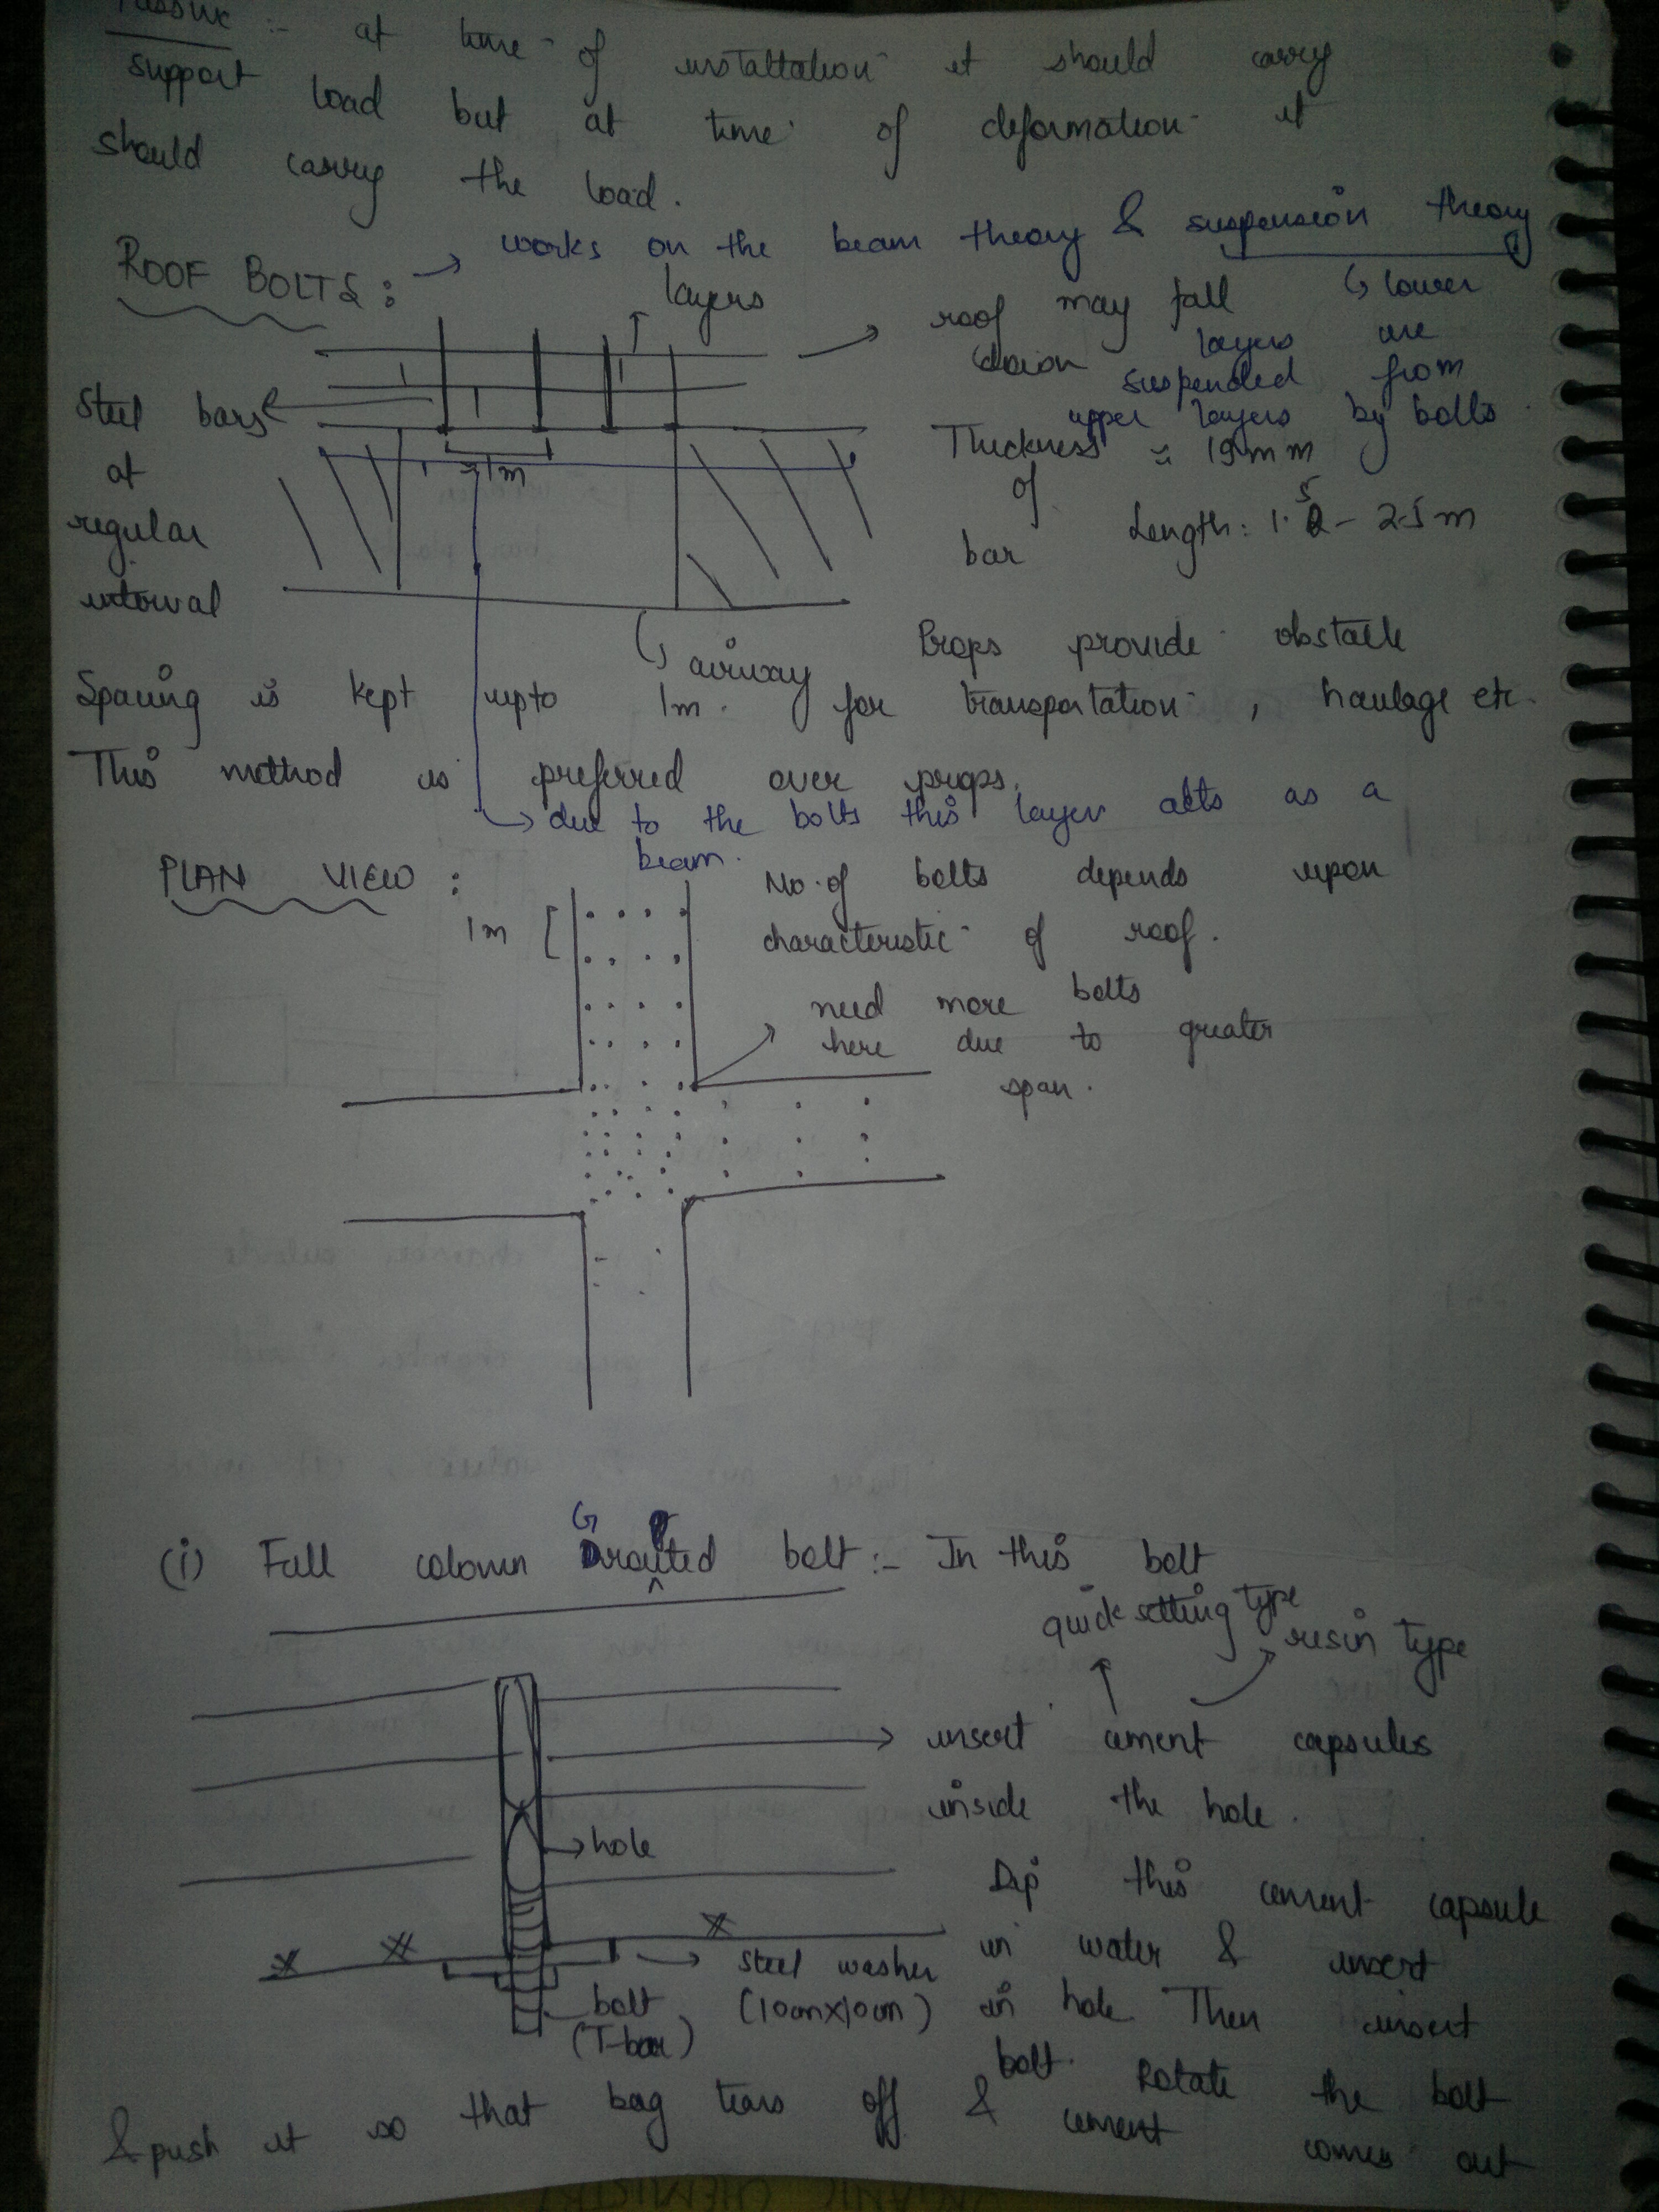 Passive :- at time of installation it should carry
support load but at time of deformation it
should carry the load.
ROOF BOLTS : → works on the beam theory & suspension theory
layers
roof may fall down
↳ lower layers are suspended from upper layers by bolts.
Steel bars at regular interval
≈ 1m
Thickness of bar ≈ 19mm
Length : 1.5 - 2.5 m
airway
Props provide obstacle
Spacing is kept upto 1m. for transportation, haulage etc.
This method is preferred over props.
due to the bolts this layer acts as a
beam.
PLAN VIEW :
1m
No. of bolts depends upon
characteristic of roof.
need more bolts
here due to greater
span.
(i) Full colomn Grouted bolt :- In this bolt
quick setting type
resin type
insert cement capsules
inside the hole.
hole
Dip this cement capsule
in water & insert
steel washer
(10cm×10cm)
bolt
(T-bar)
in hole. Then insert
bolt. Rotate the bolt
& push it so that bag tears off & cement comes out
ORGANIC CHEMISTRY